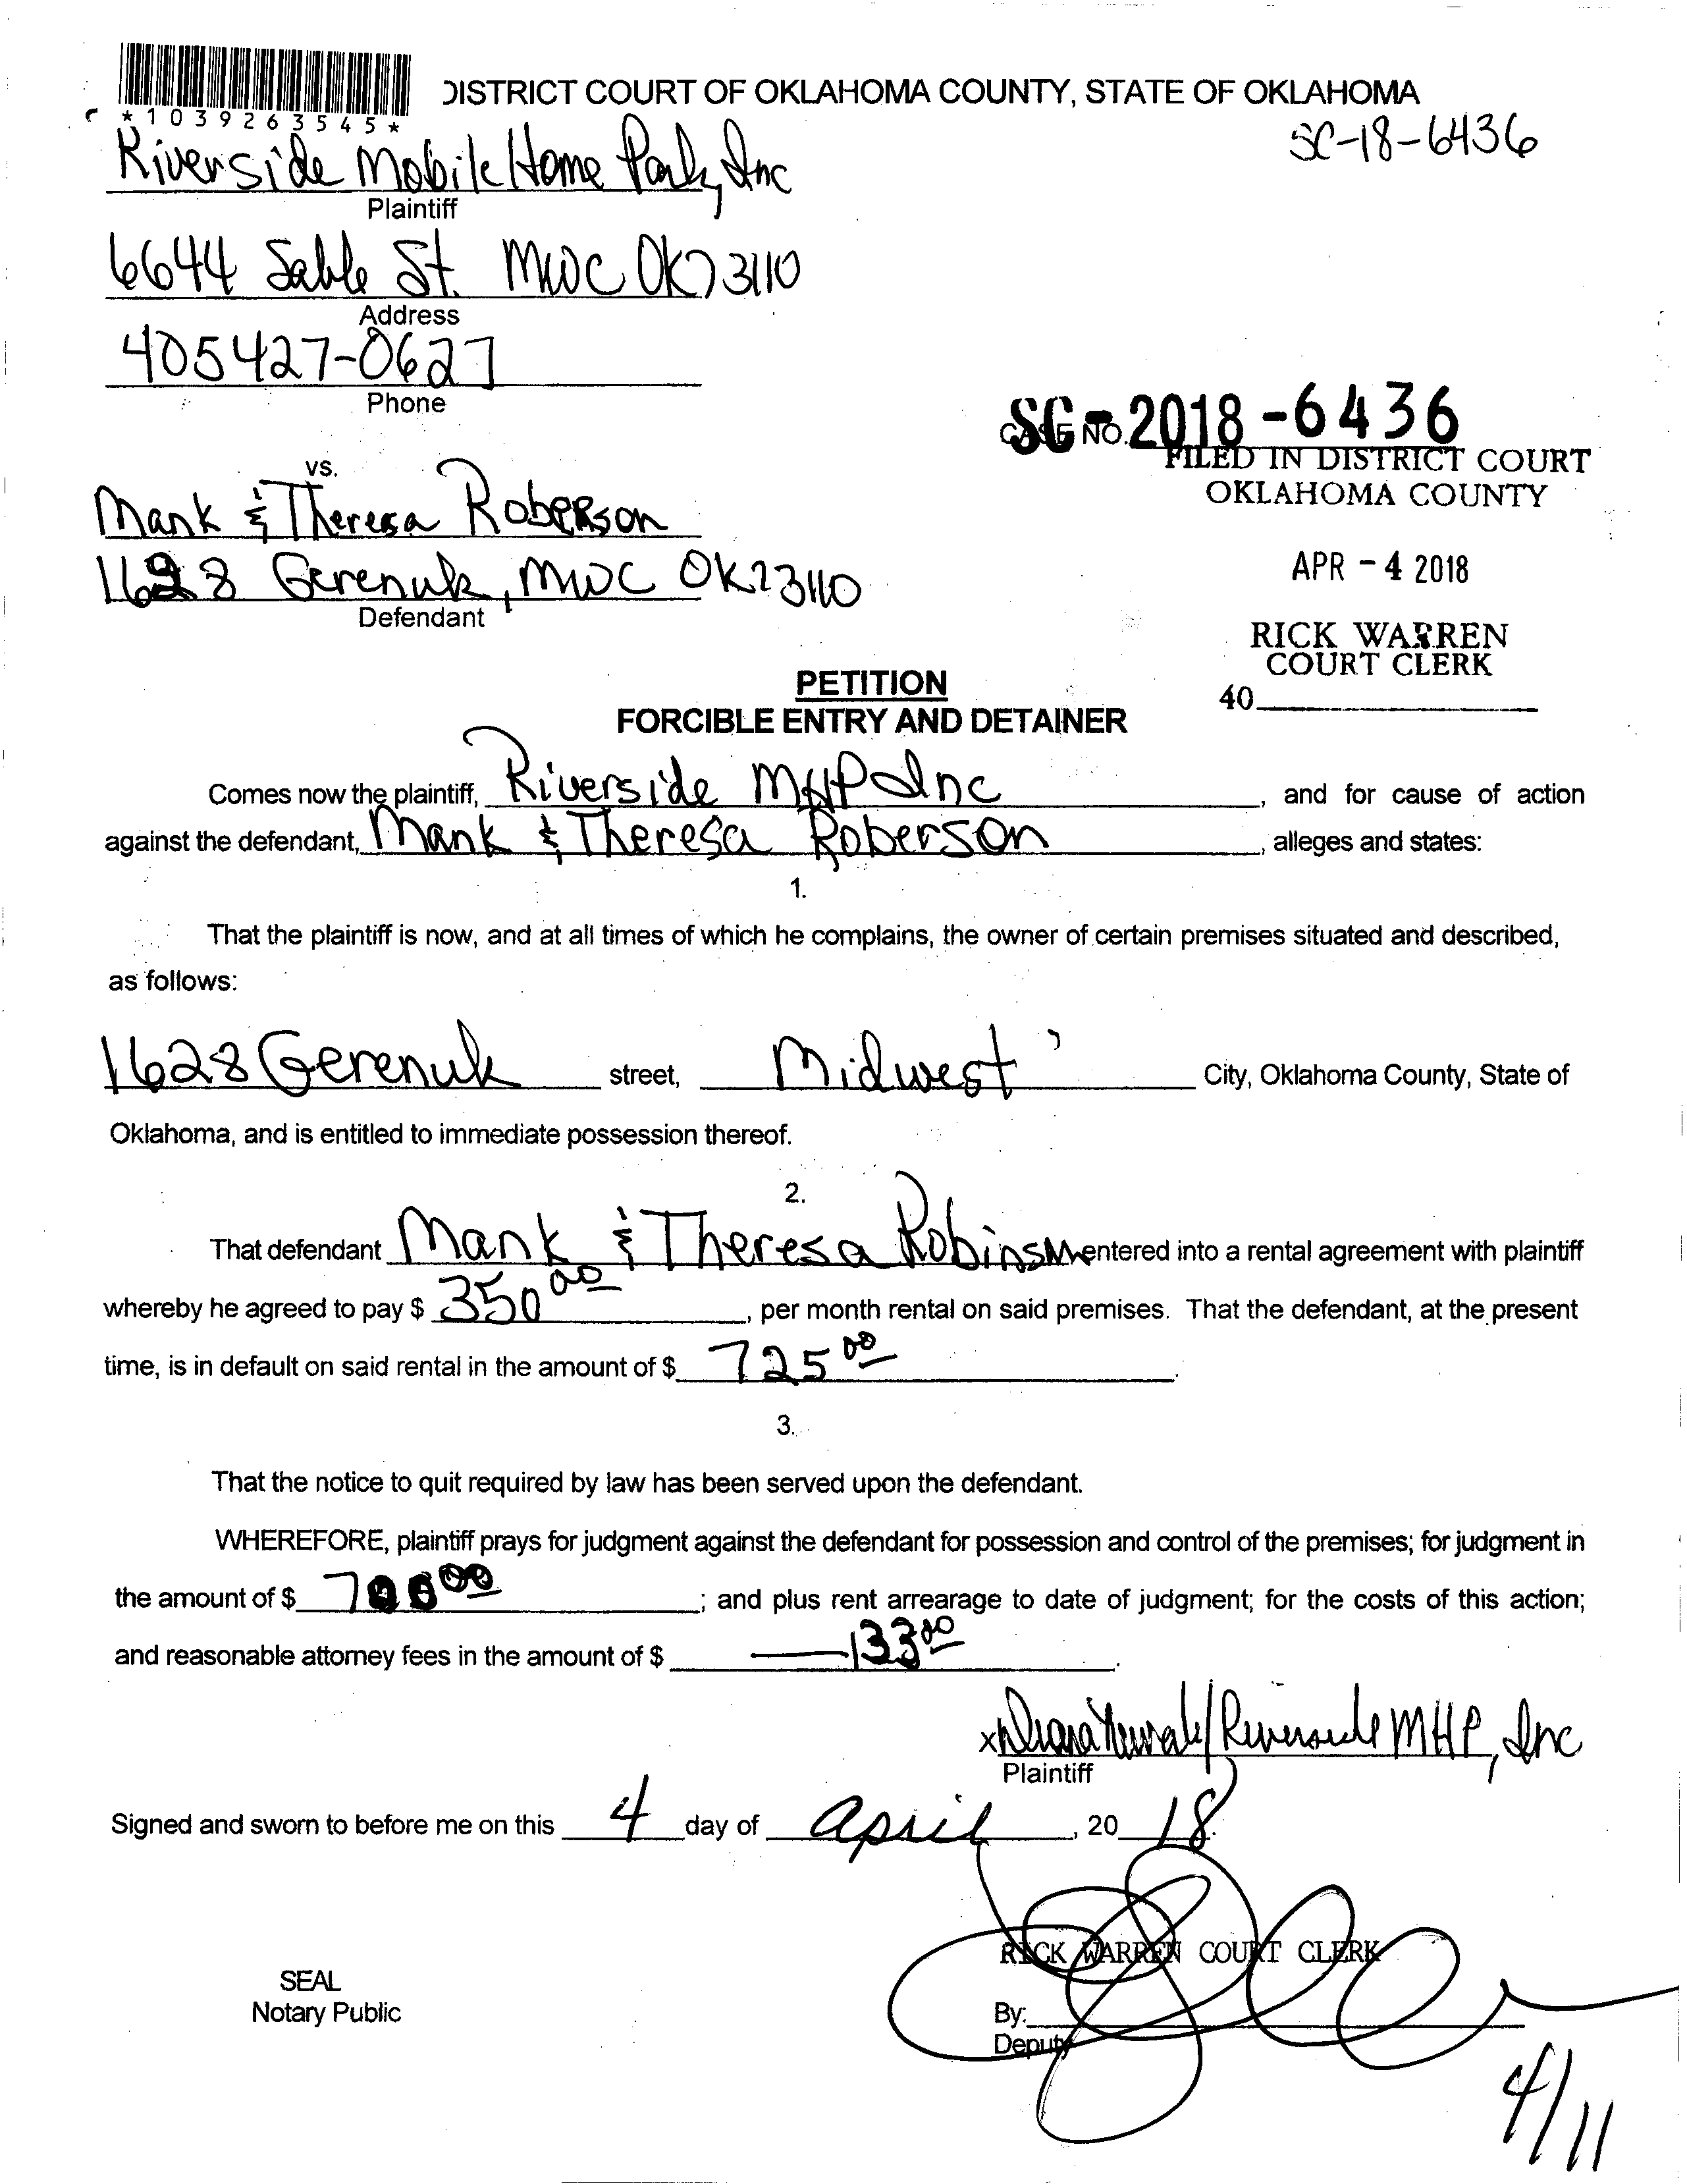 DISTRICT COURT OF OKLAHOMA COUNTY, STATE OF OKLAHOMA
*1039263545*
SC-18-6436
Riverside Mobile Home Park, Inc
Plaintiff
6644 Sable St. MWC OK 73110
Address
405 427-0627
Phone
SC-2018-6436
CASE NO.
FILED IN DISTRICT COURT
OKLAHOMA COUNTY
vs.
Mark & Theresa Roberson
1628 Gerenuk, MWC OK 73110
Defendant
APR - 4 2018
RICK WARREN
COURT CLERK
40
PETITION
FORCIBLE ENTRY AND DETAINER
Comes now the plaintiff, Riverside MHP Inc, and for cause of action
against the defendant, Mark & Theresa Roberson, alleges and states:
1.
That the plaintiff is now, and at all times of which he complains, the owner of certain premises situated and described,
as follows:
1628 Gerenuk street, Midwest City, Oklahoma County, State of
Oklahoma, and is entitled to immediate possession thereof.
2.
That defendant Mark & Theresa Robinson entered into a rental agreement with plaintiff
whereby he agreed to pay $ 350 00, per month rental on said premises. That the defendant, at the present
time, is in default on said rental in the amount of $ 725 00.
3.
That the notice to quit required by law has been served upon the defendant.
WHEREFORE, plaintiff prays for judgment against the defendant for possession and control of the premises; for judgment in
the amount of $ 00; and plus rent arrearage to date of judgment; for the costs of this action;
and reasonable attorney fees in the amount of $ 133 00.
x Diana / Riverside MHP, Inc
Plaintiff
Signed and sworn to before me on this 4 day of April, 20 18.
RICK WARREN COURT CLERK
SEAL
Notary Public
By:
Deputy
4/11